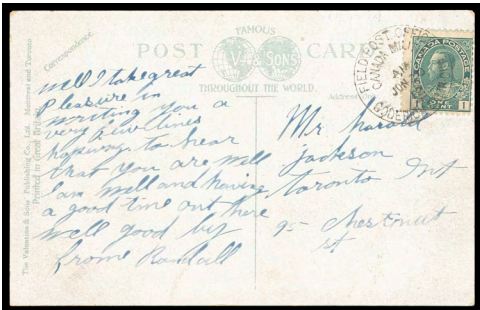 FAMOUS
POST CARD
V & SONS
THROUGHOUT THE WORLD.
Correspondence.
Address
The Valentine & Sons Publishing Co., Ltd. Montreal and Toronto
Printed in Great Britain
FIELD POST OFFICE
CANADA
AM
JUN
CANADA POSTAGE
1 ONE CENT 1
well I take great
pleasure in
writing you a
very few lines
hopeing to hear
that you are well
I am well and having
a good time out here
well good by
frome Randall
Mr harold
jackson
toronto Ont
95 Chestnut
st